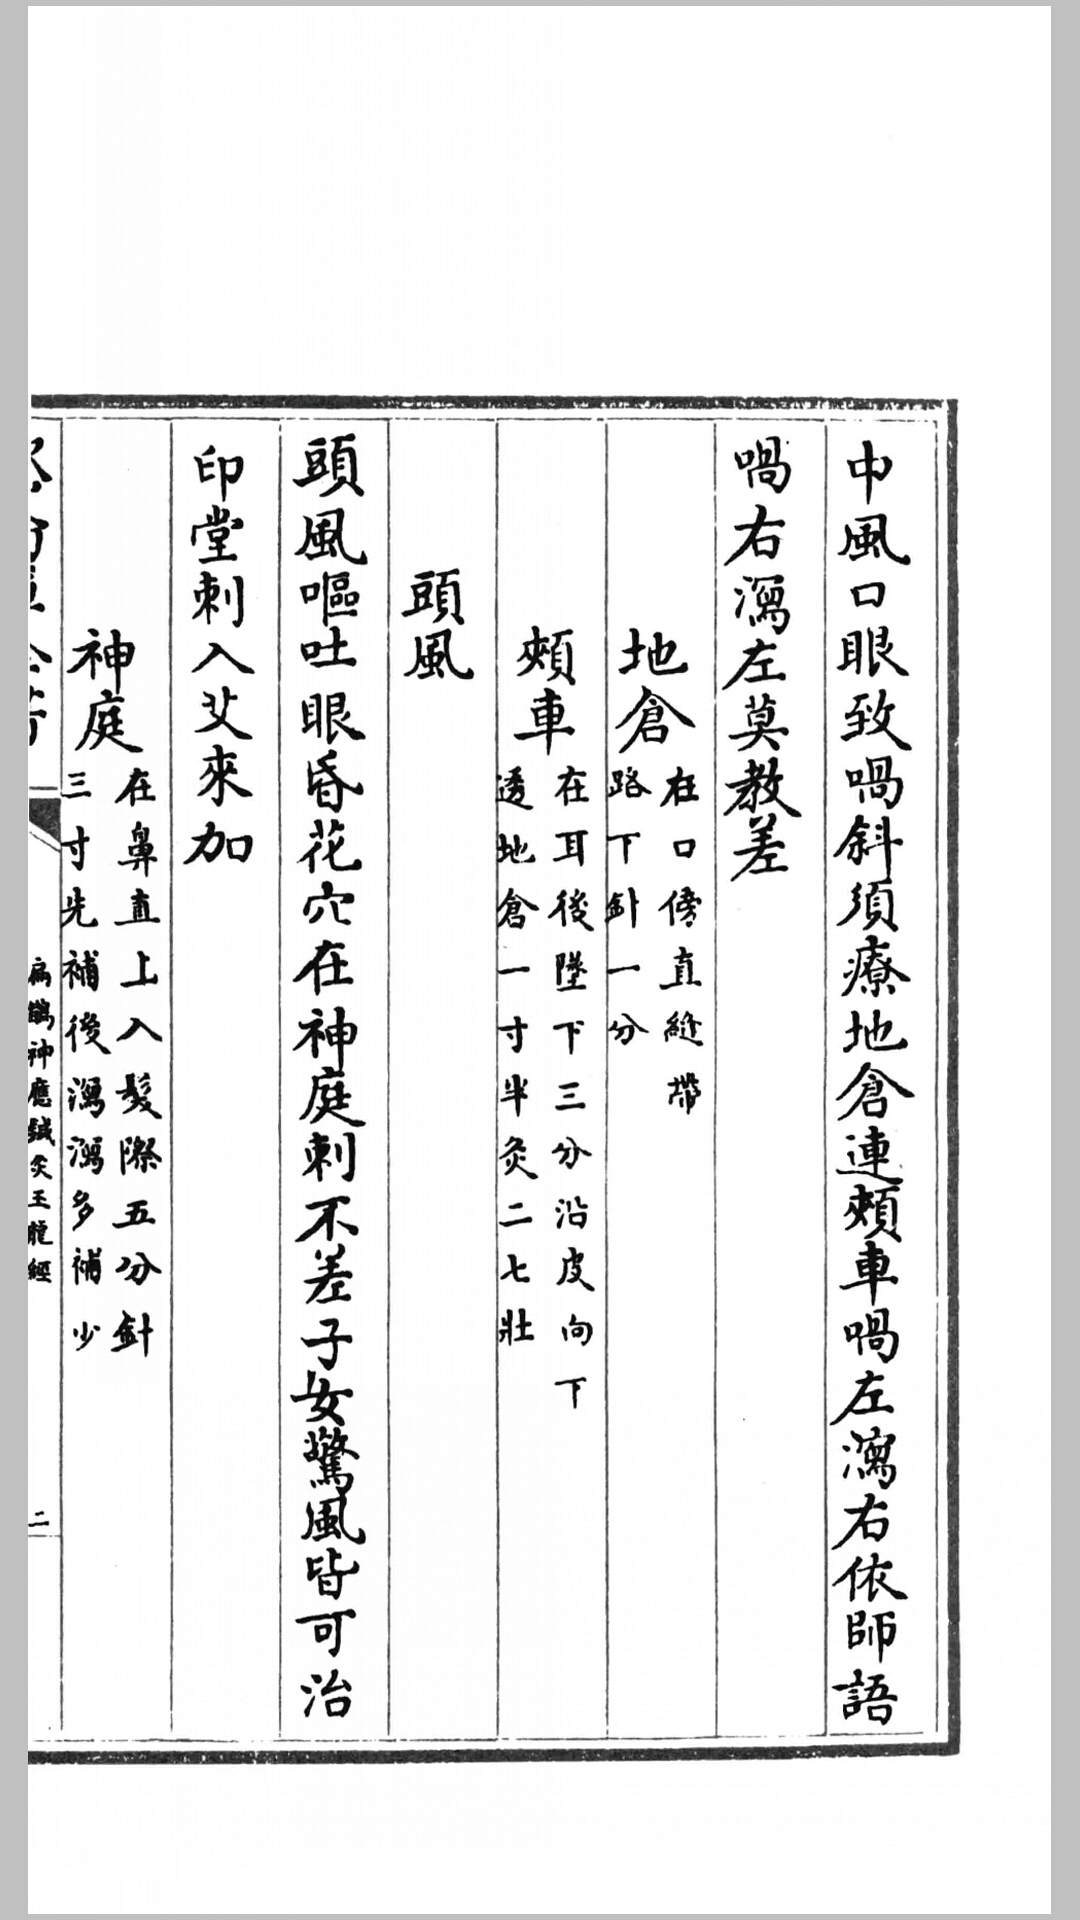 中風口眼致喎斜須療地倉連頰車喎左瀉右依師語
喎右瀉左莫教差
地倉
在口傍直縫帶
路下針一分
頰車
在耳後墜下三分沿皮向下
透地倉一寸半灸二七壯
頭風
頭風嘔吐眼昏花穴在神庭刺不差子女驚風皆可治
印堂刺入艾來加
神庭
在鼻直上入髮際五分針
三寸先補後瀉瀉多補少
扁鵲神應鍼灸玉龍經
二